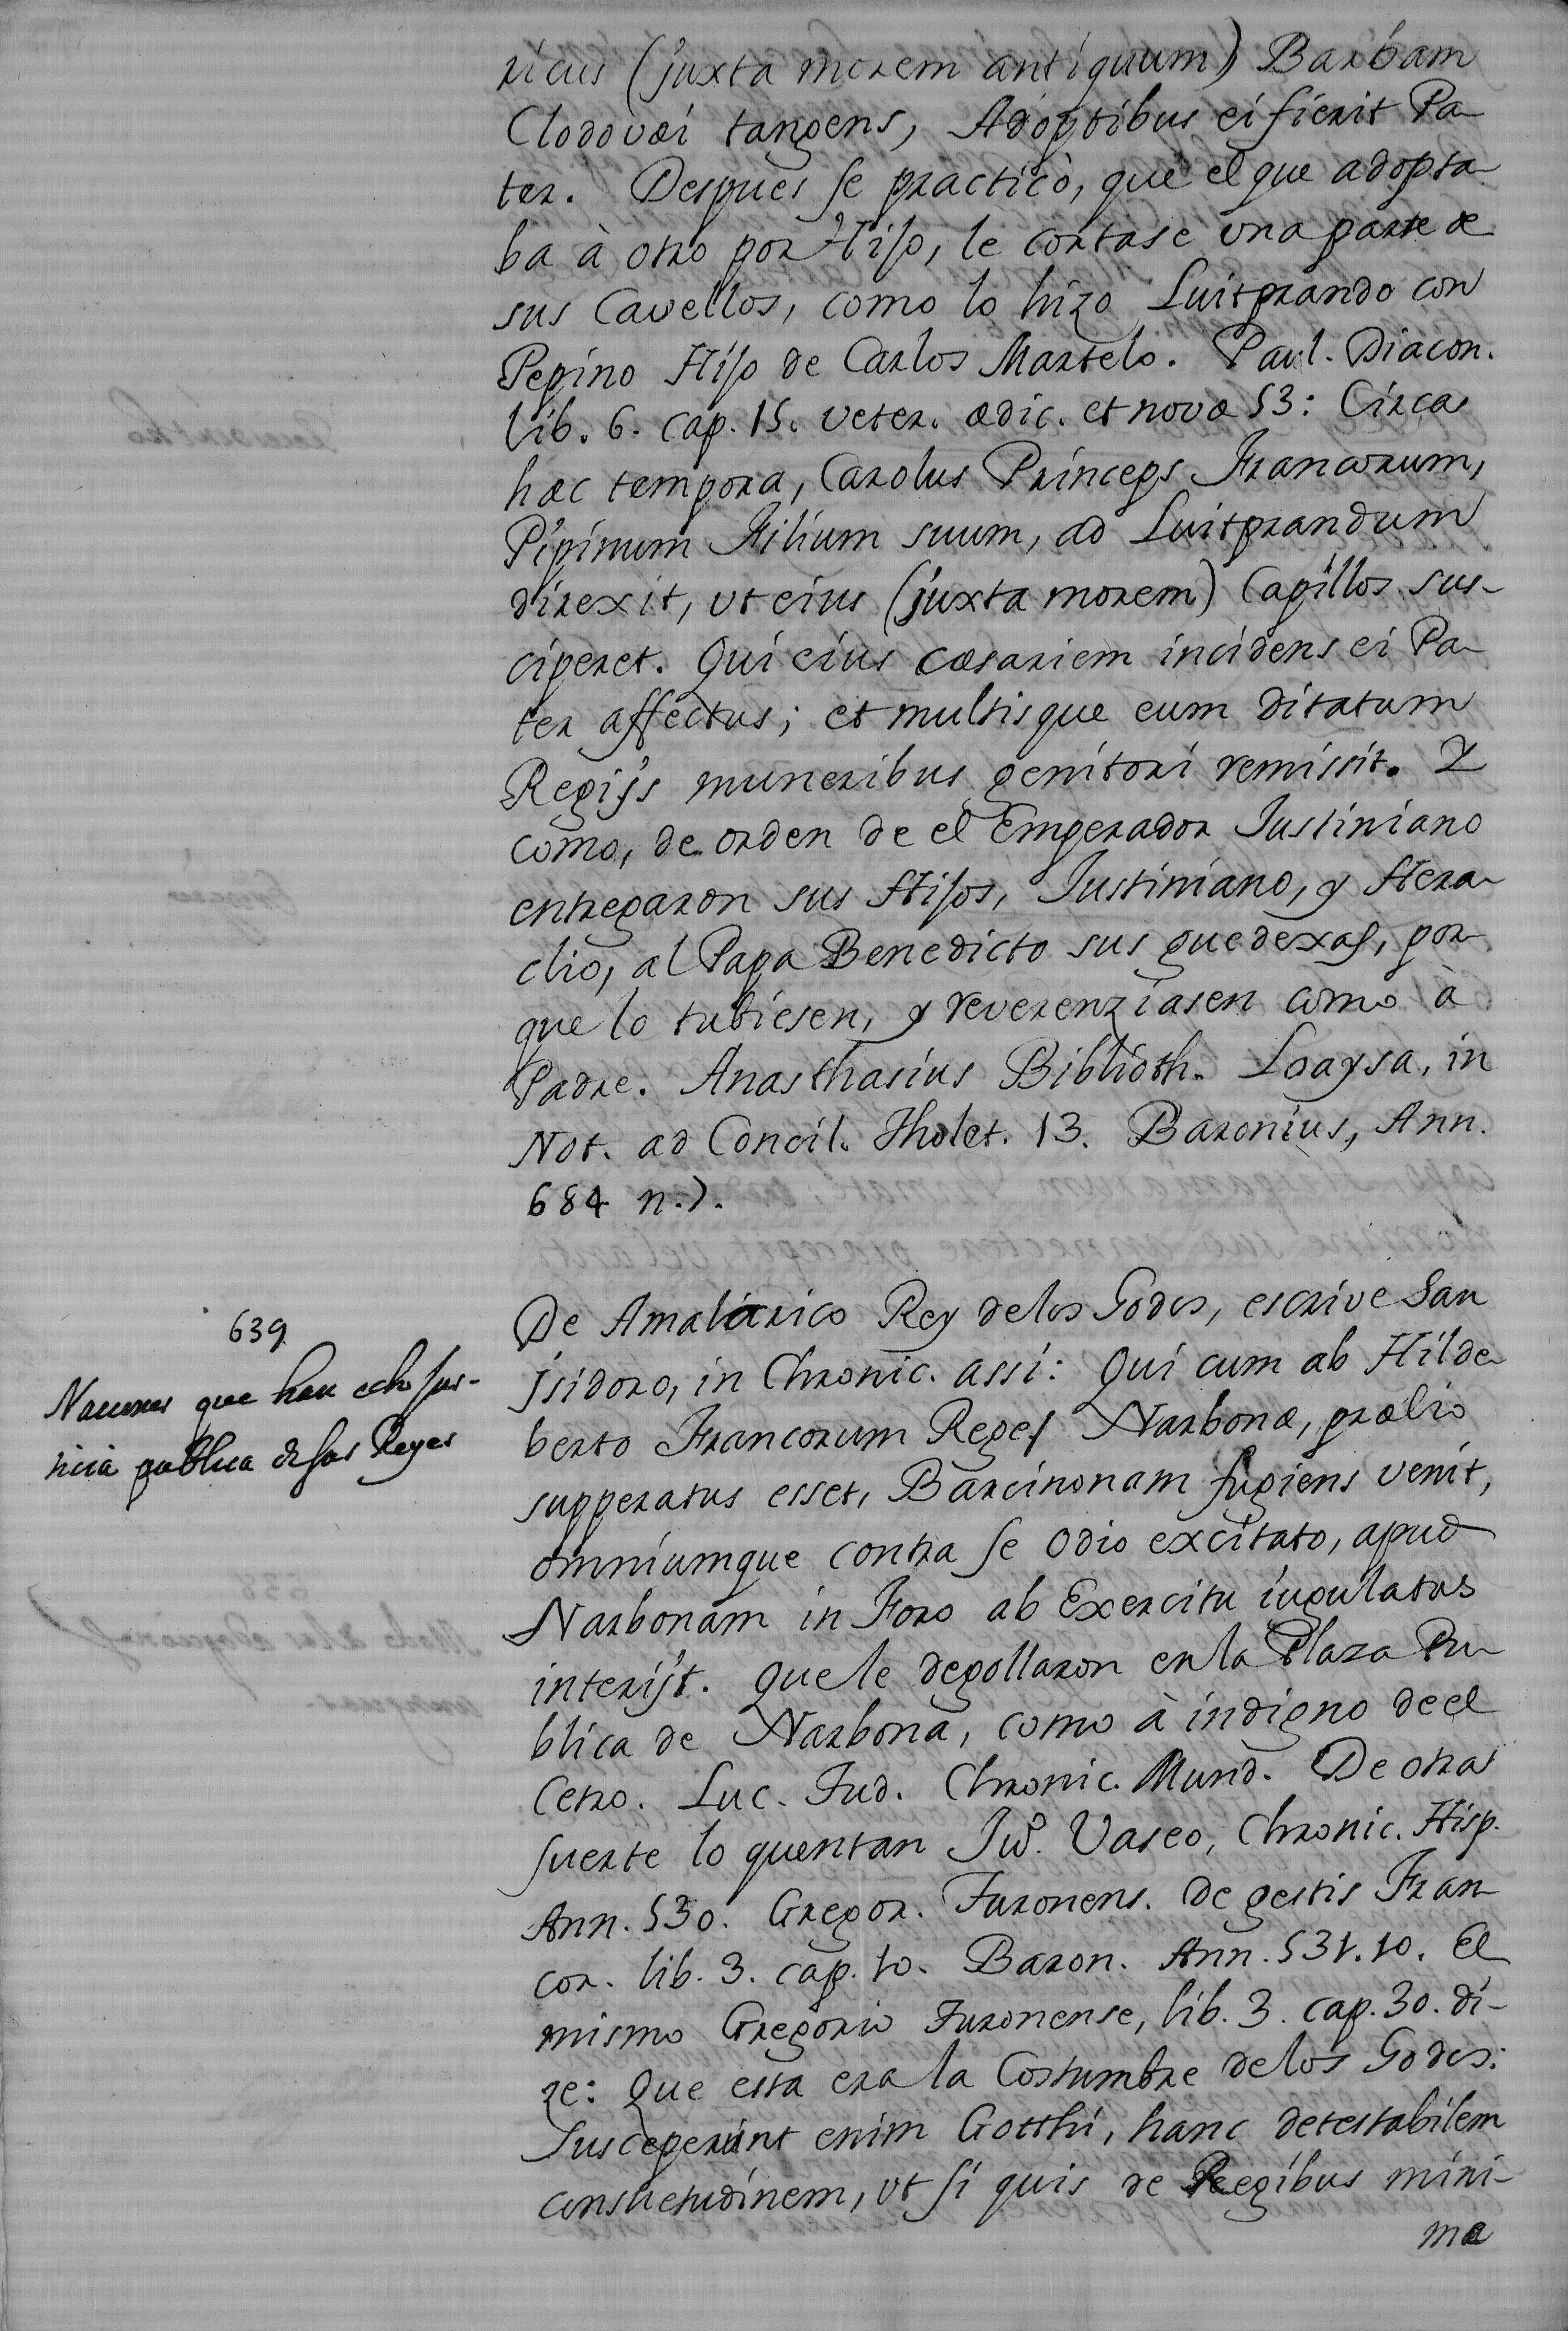 ricus (juxta morem antiquum) Barbam
Clodovæi tangens, Adoptibus ei fierit Pa-
ter. Despues se practicò, que el que adopta-
ba à otro por Hijo, le cortase una parte de
sus Cavellos, como lo hizo Luitprando con
Pepino Hijo de Carlos Martelo. Paul. Diacon.
lib. 6. cap. 15. veter. ædic. et novæ 53: Circas
hæc tempora, Carolus Princeps Francorum,
Pipinum Filium suum, ad Luitprandum
direxit, ut eius (juxta morem) Capillos sus-
ciperet. Qui eius cæsariem incidens ei Pa-
ter affectus; et multisque eum ditatum
Regijs muneribus genitori remissit. Y
como, de orden de el Emperador Iustiniano
entregaron sus Hijos, Iustiniano, y Hera-
clio, al Papa Benedicto sus guedexas, por-
que lo tubiesen, y reverenziasen como à
Padre. Anasthasius Biblioth. Loaysa, in
Not. ad Concil. Tholet. 13. Baronius, Ann.
684 n.).
639
Naciones que han echo jus-
ticia publica de sus Reyes
De Amalarico Rey de los Godos, escrive San
Isidoro, in Chronic. assi: Qui cum ab Hilde-
berto Francorum Reges Narbonæ, prælio
supperatus esset, Barcinonam fugiens venit,
omniumque contra se odio excitato, apud
Narbonam in Foro ab Exercitu iugulatus
interijt. Que le degollaron en la Plaza Pu-
blica de Narbona, como à indigno de el
Cetro. Luc. Tud. Chronic. Mund. De otras
suerte lo quentan Juº. Vaseo, Chronic. Hisp.
Ann. 530. Gregor. Turonens. De gestis Fran-
cor. lib. 3. cap. 10. Baron. Ann. 531. 10. El
mismo Gregorio Turonense, lib. 3. cap. 30. di-
ze: Que esta era la Costumbre de los Godos:
Susceperunt enim Gotthi, hanc detestabilem
consuetudinem, ut si quis de Regibus mini-
me